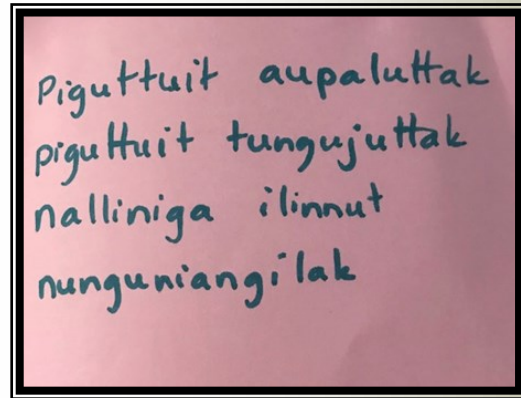 Piguttuit aupaluttak
piguttuit tungujuttak
nalliniga ilinnut
nunguniangilak